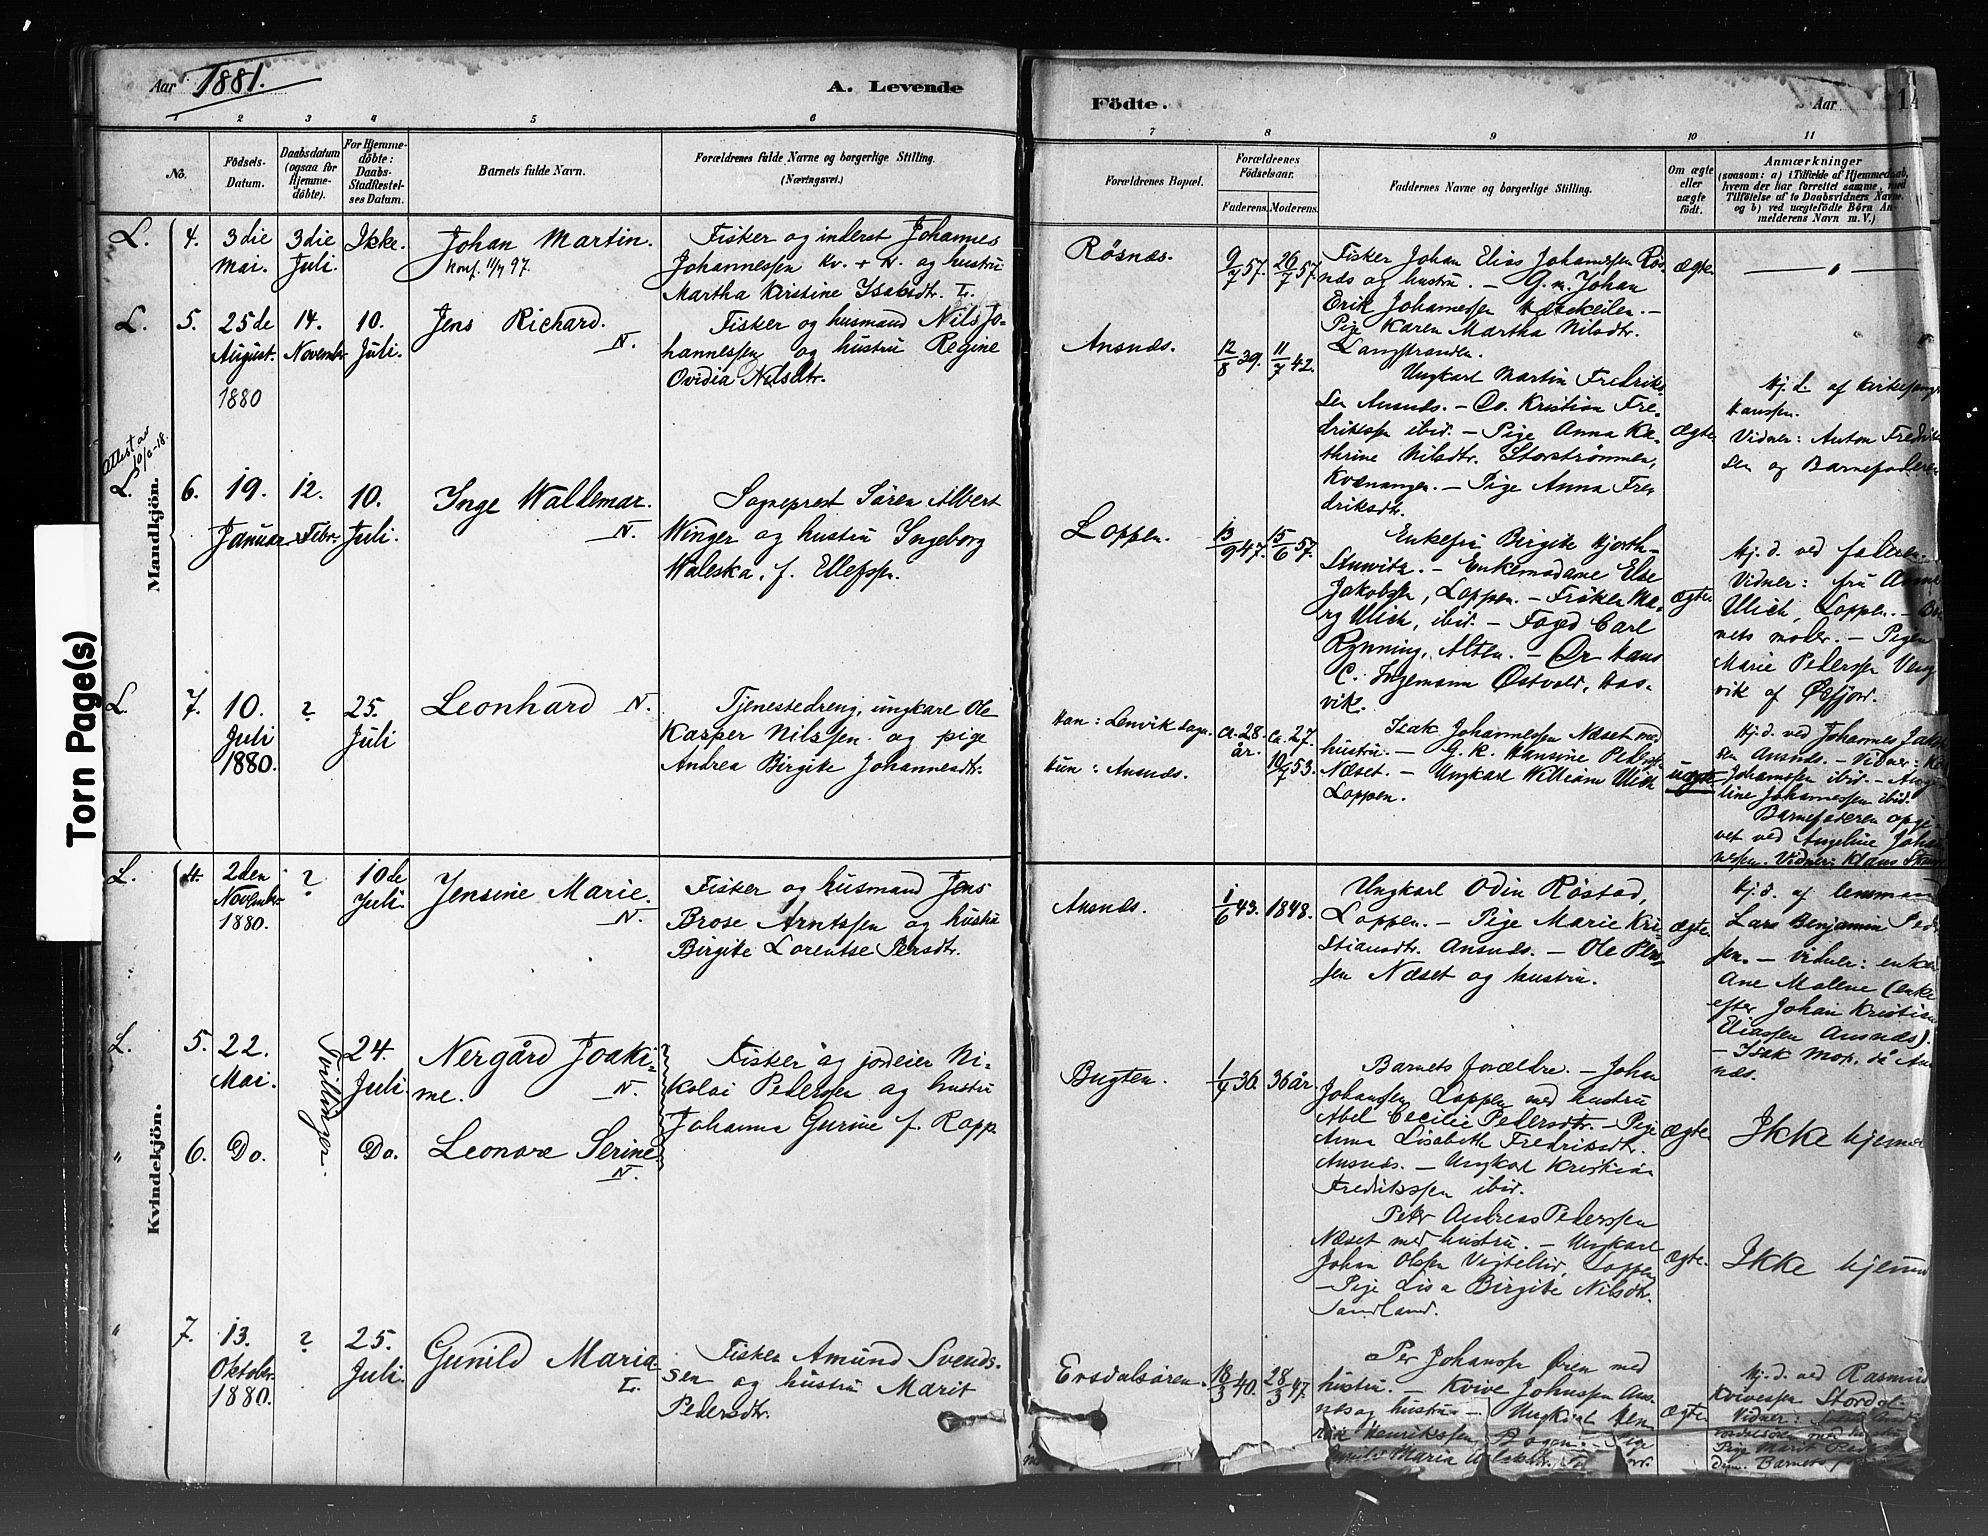 Aar 1881.
A. Levende
Födte.
Aar
14
1 2 3 4 5 6
7 8 9 10 11
No.
Födsels-
Datum.
Daabsdatum
(ogsaa for
Hjemme-
döbte).
For Hjemme-
döbte:
Daabs-
Stadfæstel-
ses Datum.
Barnets fulde Navn.
Forældrenes fulde Navne og borgerlige Stilling.
(Næringsvei.)
Forældrenes Bopæl.
Forældrenes
Födselsaar.
Faderens. Moderens.
Faddernes Navne og borgerlige Stilling.
Om ægte
eller
uægte
født.
Anmærkninger
(saasom: a) i Tilfælde af Hjemmedaab,
hvem der har forrettet samme, med
Tilföielse af to Daabsvidners Navne.
og b) ved uægtefödte Börn An-
melderens Navn m. V.)
Mandkjön.
L. 4. 3die
Mai.
3die
Juli.
Ikke.
Johan Martin.
Konf. 11/7 97.
Fisker og inderst Johannes
Johannessen Kv. + N. og hustru
Martha Kirstine Isaksdtr. L.
Røsnæs.
9/7 57. 26/7 57.
Fisker Johan Elias Johannessen Røs-
næs og hustru. — G. m. Johan
Erik Johannessen
Pige Karen Martha Nilsdtr.
Langstranden.
ægte
— " —
L. 5. 25de
August.
1880
14.
Novembr
10.
Juli.
Jens Richard.
N.
Fisker og husmand Nils Jo-
hannessen og hustru Regine
Ovidia Nilsdtr.
Ansnæs.
12/8 39. 11/7 42.
Ungkarl Martin Fredriks-
sen Ansnæs. — Do. Kristian Fre-
drikssen ibid. — Pige Anna Ka-
thrine Nilsdtr. Storstrømmen,
Kvænangen. — Pige Anna Fre
driksdtr.
ægte
Hj. d. af Kirkesanger
Hanssen.
Vidner: Anton Fredrik
sen og Barnefaderen
Attest av
10/6-18.
L. 6. 19.
Januar
12.
Febr.
10.
Juli.
Inge Waldemar.
N.
Sogneprest Sören Albert
Winger og hustru Ingeborg
Waleska, f. Ellefsen.
Loppen.
13/9 47. 15/6 57.
Enkefru Birgitte Hjorth-
Stuwitz. — Enkemadame Else
Jakobsen, Loppen. — Frøken Ma-
ry Ulich, ibid. — Foged Carl
Rynning, Alten. — Dr Hans
C. Ingemann Østvold, Has-
vik.
ægte
Hj. d. ved faderen.
Vidner: fru Anna
Ulich, Loppen. — Bar
nets moder. — Pigen
Marie Pederssen Ven
vik af Øxfjord.
L. 7. 10.
Juli
1880.
?
25.
Juli
Leonhard N.
Tjenestedreng, ungkarl Ole
Kasper Nilssen og pige
Andrea Birgite Johannesdtr.
Han: Lenvik Sogn.
Hun: Ansnæs.
ca. 28
år.
ca. 27.
10/7 53.
Isak Johannessen Næset m.
hustru. — G. K. Hansine Pedersdtr
Næset. — Ungkarl William Ulich
Loppen.
uægte
Hj. d. ved Johannes Jak
sen Ansnæs. — Vidner:
Johannssen ibid. — Ange
line Johannessen ibid.
Barnefaderen opgi-
vet ved Angeline Johan
nessen. Vidner: Klaus
Kvindekjön.
L. 4. 2den
Novembr
1880.
?
10de
Juli.
Jensine Marie.
N.
Fisker og husmand Jens
Brose Arntssen og hustru
Birgite Lorentse Persdtr.
Ansnæs.
1/6 43. 1848.
Ungkarl Odin Røstad,
Loppen. — Pige Marie Kri-
stiansdtr. Ansnæs. — Ole Peds-
sen Næset og hustru.
ægte
Hj. d. af lensmand
Lars Benjamin Peder
sen. — Vidner: enken
Ane Mallene (enke
efter Johan Kristian
Eliassen Ansnæs).
— Isak
næs.
L. 5. 22.
Mai.
Tvillinger.
24.
Juli.
Nergård Joaki-
me. N.
Fisker og jordeier Ni-
kolai Pederssen og hustru
Johanna Gurine f. Rapp
Bugten.
1/7 36. 36 år.
Barnets forældre. — Johan
Johanssen Loppen med hustru
Abel Cecilie Pedersdtr. — Pige
Anna Lisabeth Fredriksdtr.
Ansnæs. — Ungkarl Kristian
Fredrikssen ibid.
ægte
Ikke hjemme
" 6. Do.
Do.
Leonore Serine
N.
Peter Andreas Pederssen
Næset med hustru. — Ungkarl
Johan Olssen Loppen
— Pige Lisa Birgite Nilsdtr.
Sandland.
ægte.
Ikke hjemme
" 7. 13.
Oktobr.
1880.
?
25.
Juli.
Gunild Maria
L.
Fisker Amund Svends-
sen og hustru Marit
Pedersdtr.
Ersdalsøren.
18/3 40. 28/3 47.
Per Johanssen Øren med
hustru. — Kvive Johnssen Ans-
næs og hustru — Ungkarl Hen
rik Henrikssen, Bogen. — Pige
Maria
ægte
Hj. d. ved Rasmus
Kvivessen Stordal.
Vidner:
Pige Marit
Barnets
Torn Page(s)